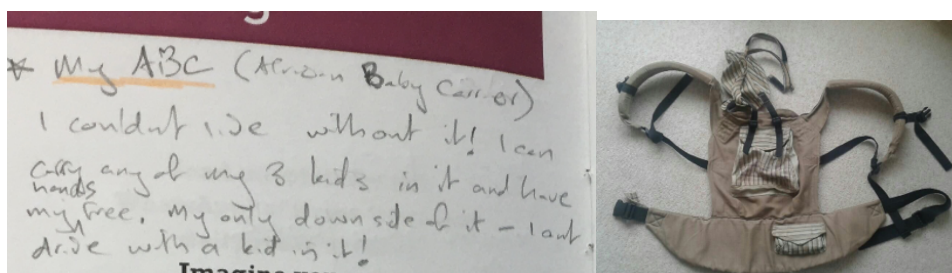 g
* My ABC (African Baby Carrier)
I couldnt live without it! I can
carry any of my 3 kids in it and have
my hands free. My only downside of it - I cnt
drive with a kid in it!
Imagine